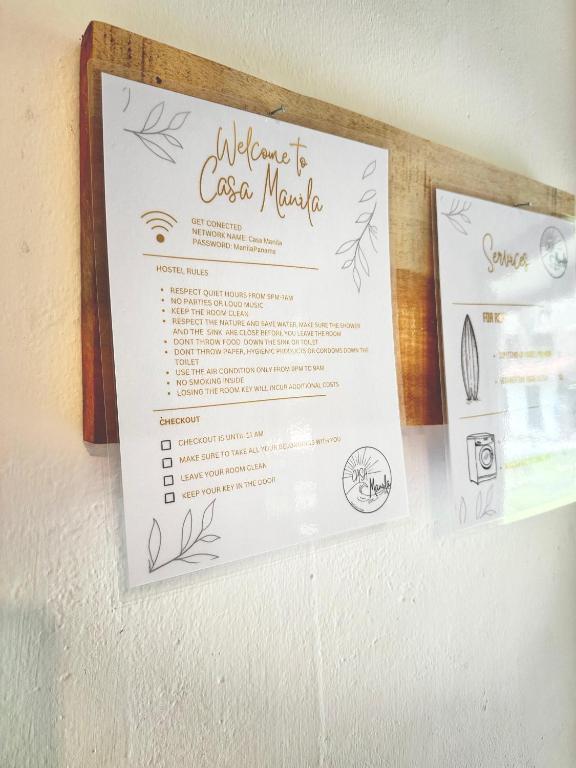 Welcome to
Casa Manila
GET CONECTED
NETWORK NAME: Casa Manila
PASSWORD: ManilaPanama
HOSTEL RULES
• RESPECT QUIET HOURS FROM 9PM-7AM
• NO PARTIES OR LOUD MUSIC
• KEEP THE ROOM CLEAN
• RESPECT THE NATURE AND SAVE WATER, MAKE SURE THE SHOWER
AND THE SINK ARE CLOSE BEFORE YOU LEAVE THE ROOM
• DONT THROW FOOD DOWN THE SINK OR TOILET
• DONT THROW PAPER, HYGIENIC PRODUCTS OR CONDOMS DOWN THE
TOILET
• USE THE AIR CONDITION ONLY FROM 8PM TO 9AM
• NO SMOKING INSIDE
• LOSING THE ROOM KEY WILL INCUR ADDITIONAL COSTS
CHECKOUT
CHECKOUT IS UNTIL 11 AM
MAKE SURE TO TAKE ALL YOUR BELONGINGS WITH YOU
LEAVE YOUR ROOM CLEAN
KEEP YOUR KEY IN THE DOOR
Manila
Services
FOR